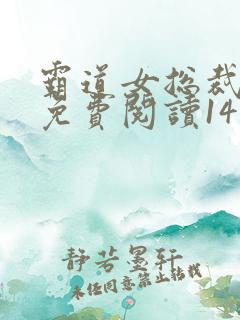 霸道女总裁
免費閱讀14
静若墨轩
未经同意禁止转载